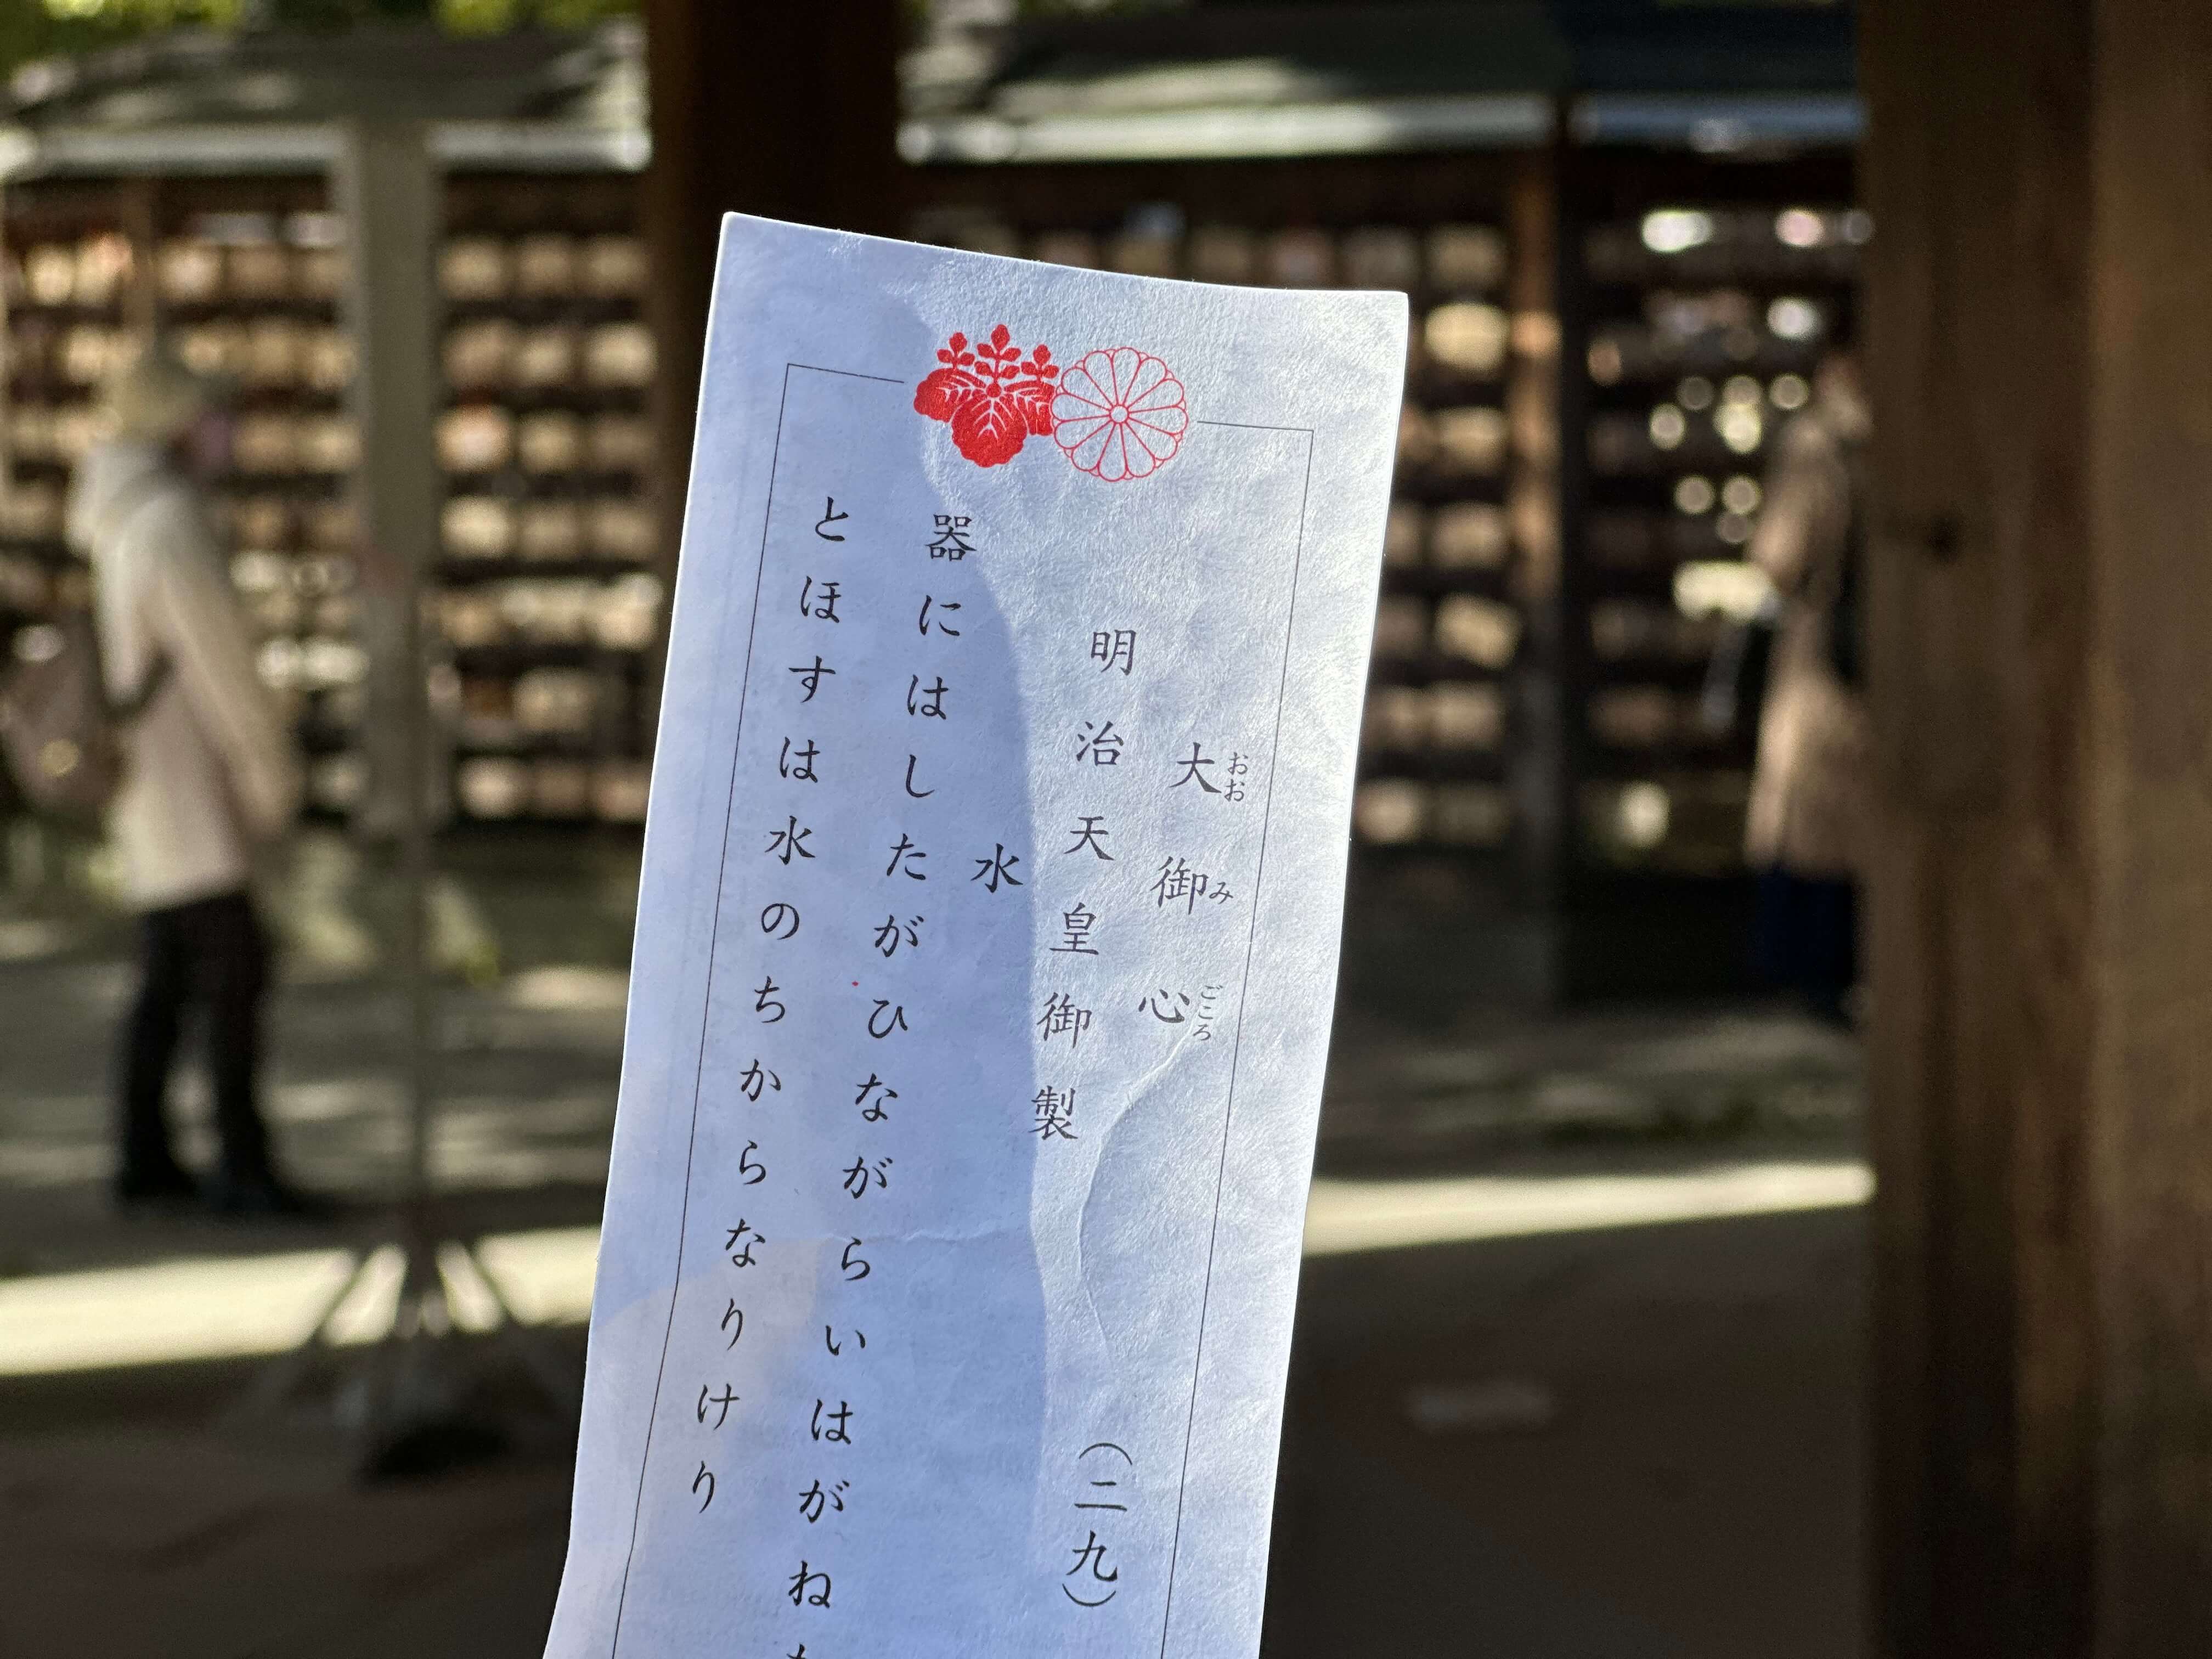 大御心
おおみごころ
明治天皇御製
(二九)
水
器にはしたがひながらいはがね
とほすは水のちからなりけり